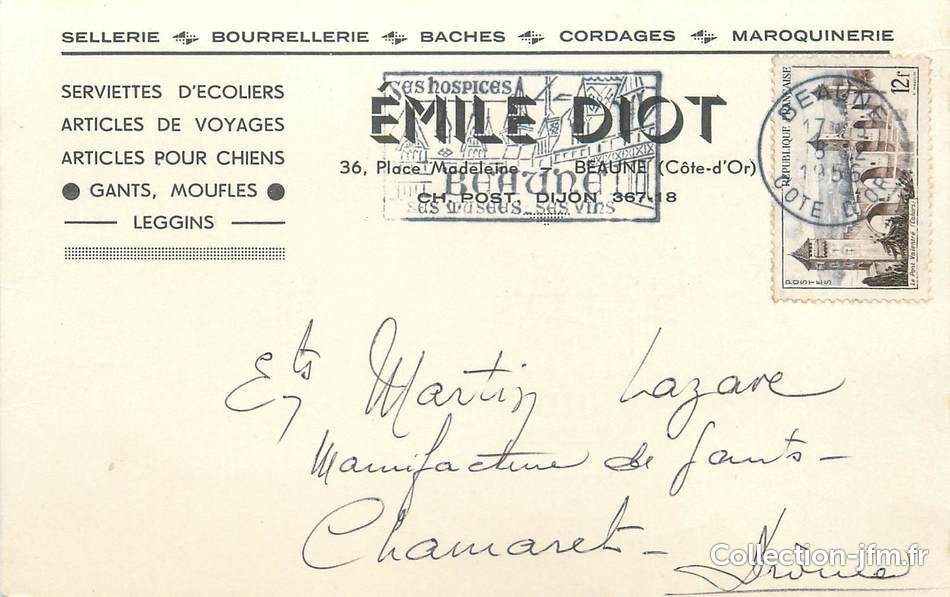 SELLERIE BOURRELLERIE BACHES CORDAGES MAROQUINERIE
SERVIETTES D'ECOLIERS
ARTICLES DE VOYAGES
ARTICLES POUR CHIENS
● GANTS, MOUFLES ●
— LEGGINS —
ÉMILE DIOT
36, Place Madeleine BEAUNE (Côte-d'Or)
CH. POST. DIJON 367-18
SES HOSPICES
BEAUNE
SES MUSÉES_SES VINS
BEAUNE
17
1956
COTE D'OR
REPUBLIQUE FRANÇAISE
12F
POSTES
Le Pont Valentré (Cahors)
Ets Martin Lazare
Manufacture de Gants -
Chamaret - Drôme
Collection-jfm.fr